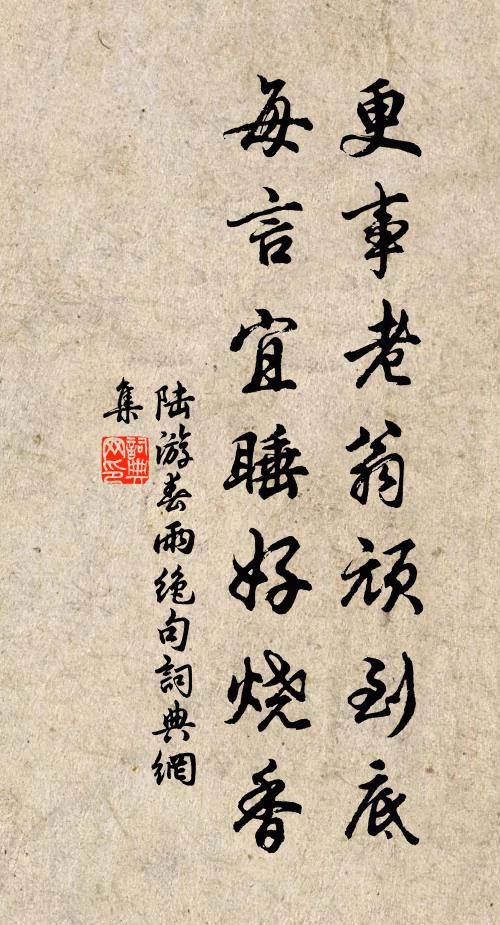 更事老翁頑到底
每言宜睡好燒香
陸游春雨絕句詞典網
集
詞典
网印